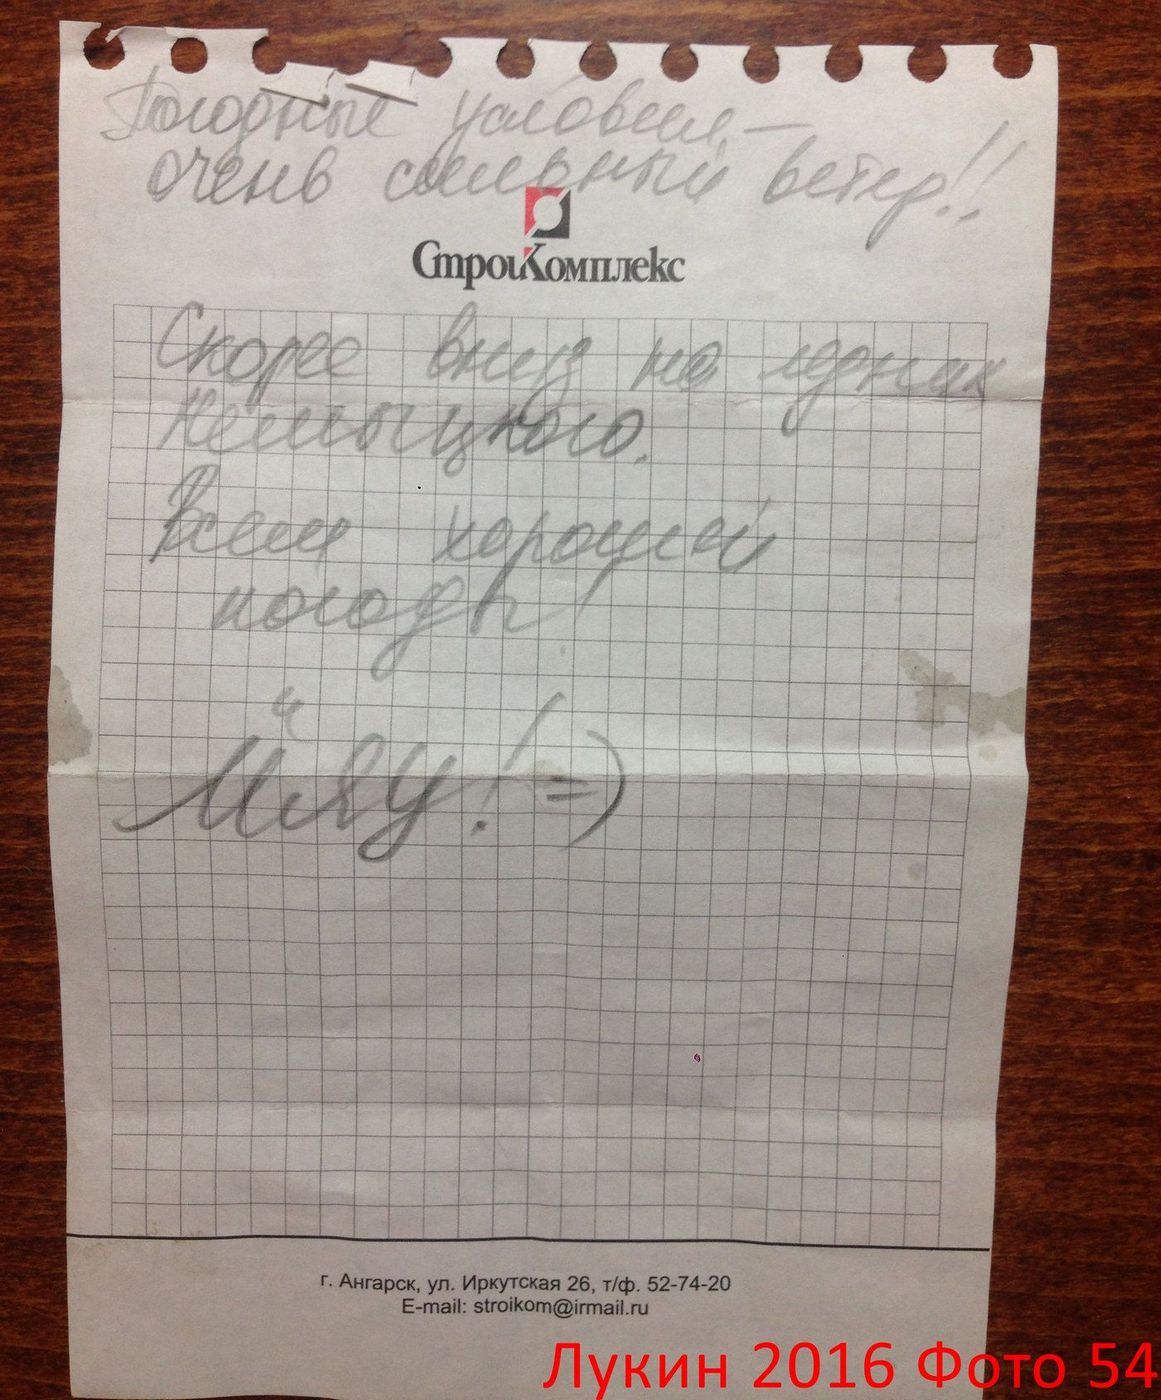 Погодные условия –
очень сильный ветер!!
СтройКомплекс
Скорее вниз на ледник
Немыцкого.
Всем хорошей
погоды!
Мяу! =)
г. Ангарск, ул. Иркутская 26, т/ф. 52-74-20
E-mail: stroikom@irmail.ru
Лукин 2016 Фото 54